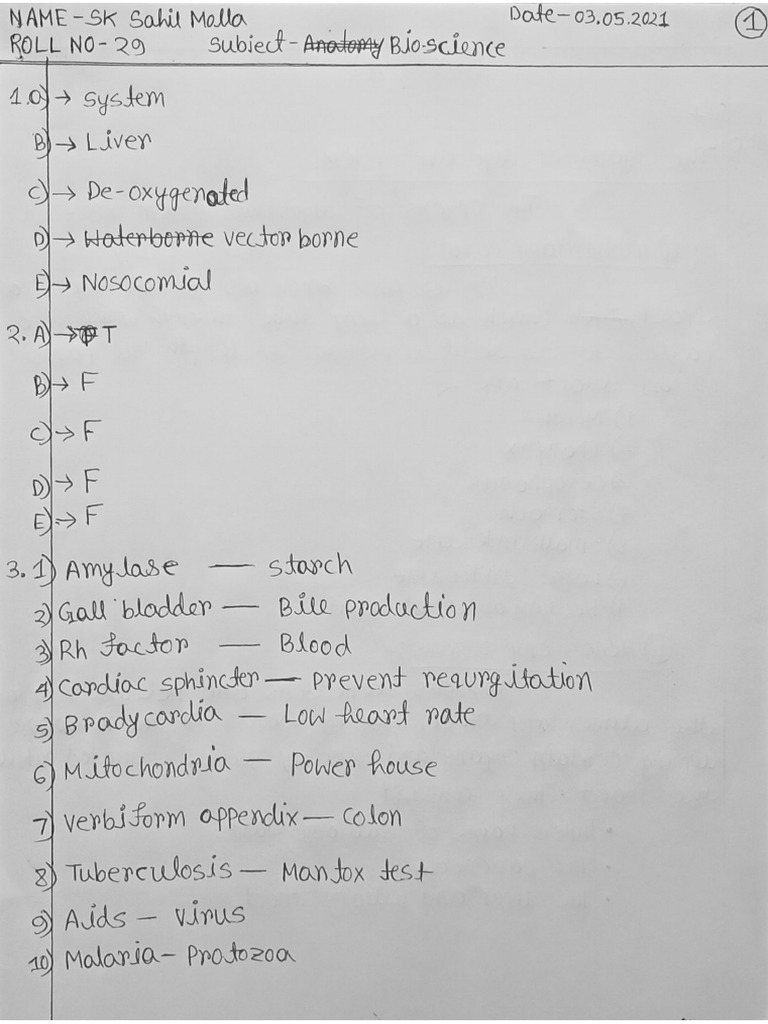 NAME - SK Sahil Molla Date - 03.05.2021 1
ROLL NO - 29 Subject - Anatomy Bio-science
1.a) → system
B) → Liver
C) → De-oxygenated
D) → Waterborne vector borne
E) → Nosocomial
2. A) → T
B) → F
C) → F
D) → F
E) → F
3. 1) Amylase — starch
2) Gall bladder — Bile production
3) Rh factor — Blood
4) Cardiac sphincter — prevent requrgitation
5) Bradycardia — Low heart rate
6) Mitochondria — Power house
7) verbiform appendix — colon
8) Tuberculosis — Mantox test
9) Aids — virus
10) Malaria — Protozoa